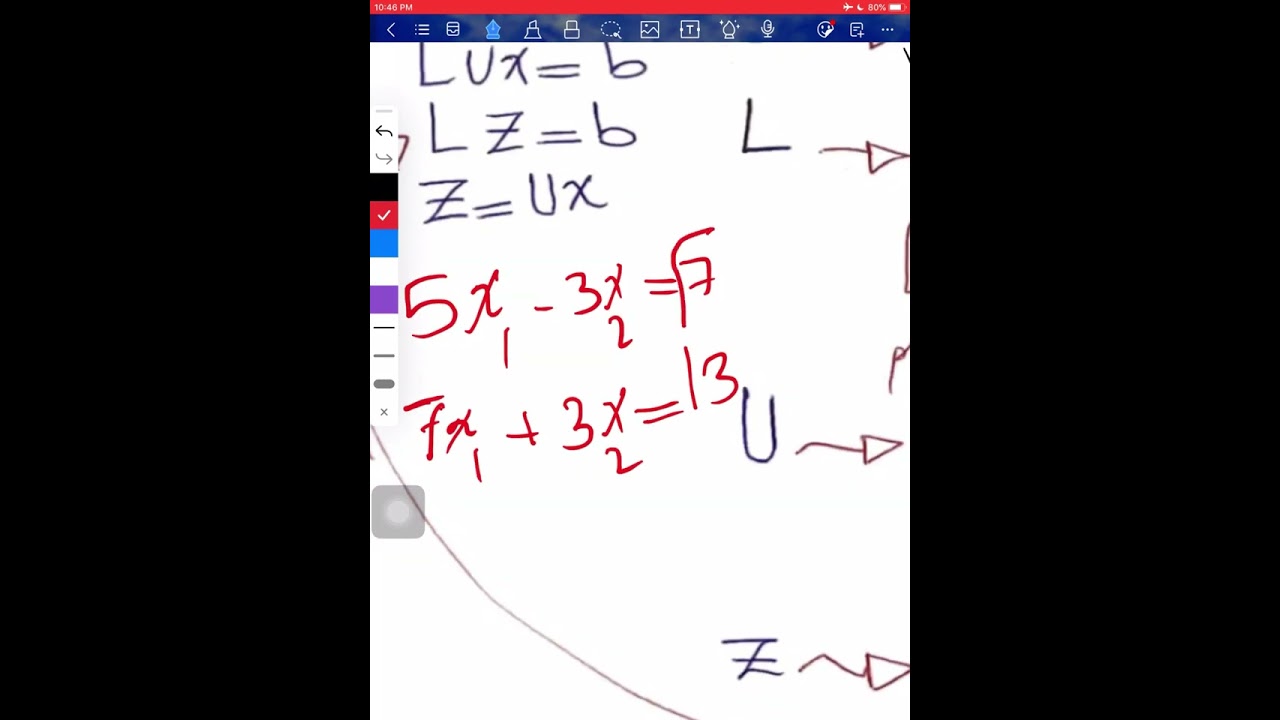 10:46 PM
80%
LUx=b
LZ=b
Z=Ux
L
5x₁ - 3x₂ = 7
7x₁ + 3x₂ = 13
U
Z